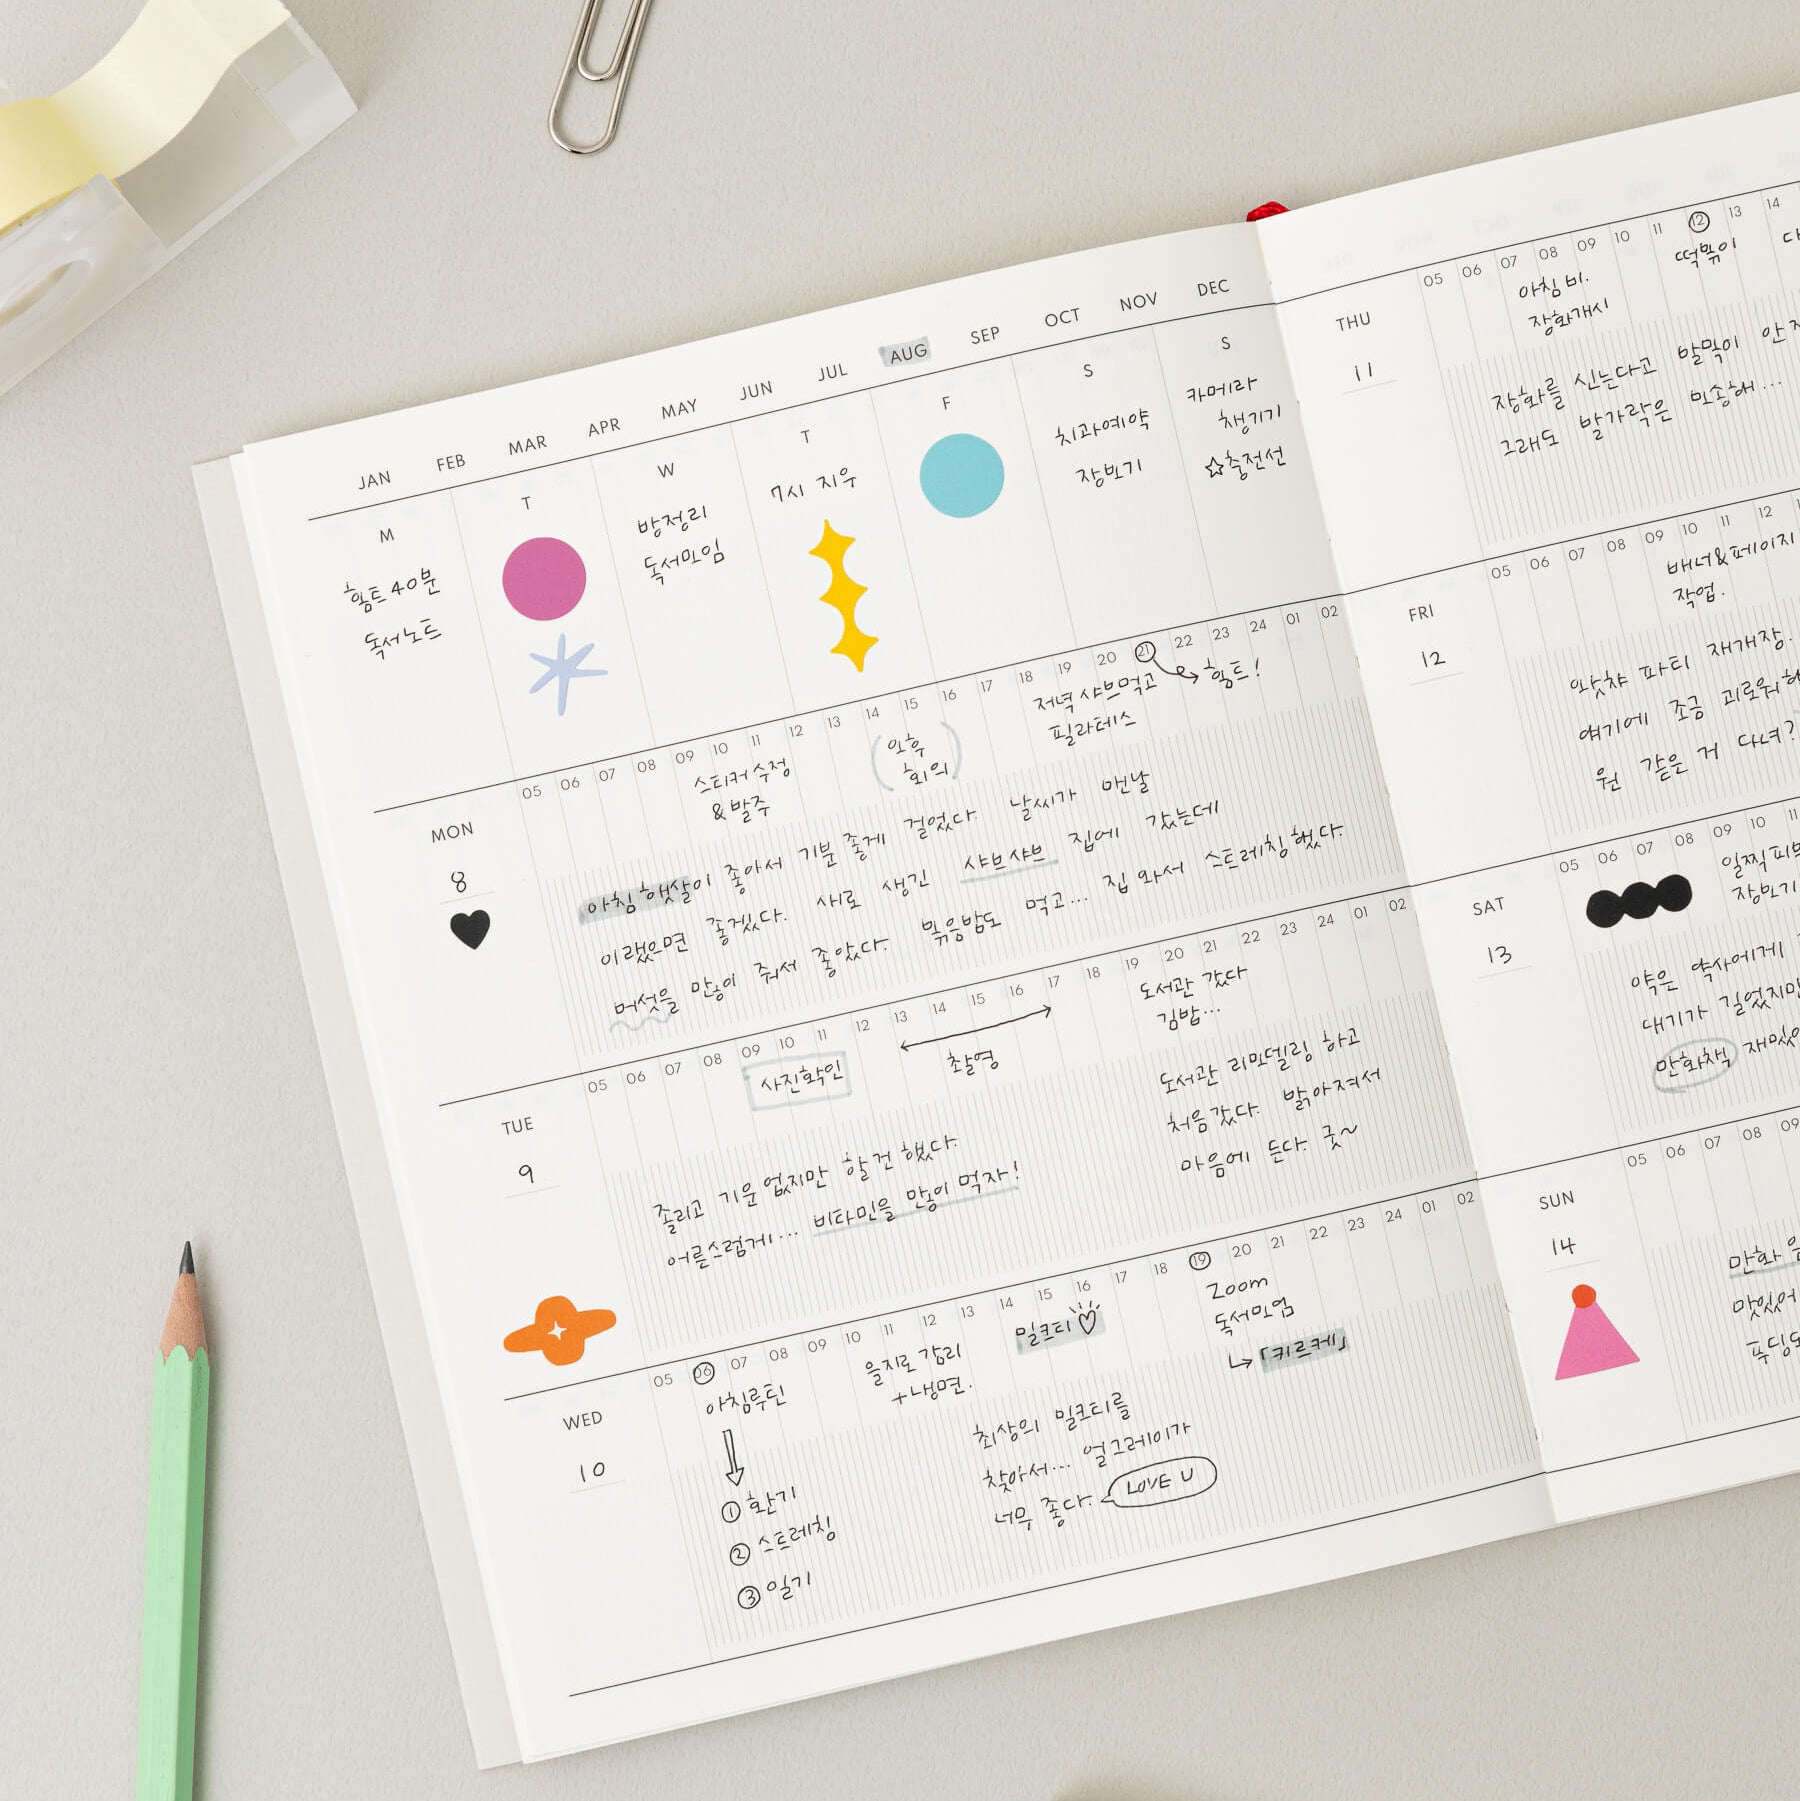 JAN FEB MAR APR MAY JUN JUL AUG SEP OCT NOV DEC
M T W T F S S
홈트 40분
독서노트
방정리
독서모임
7시 지우
치과예약
장보기
카메라
챙기기
☆충전선
05 06 07 08 09 10 11 12 13 14 15 16 17 18 19 20 21 22 23 24 01 02
MON
8
스티커 수정
& 발주
오후
회의
저녁 샤브먹고
필라테스
홈트!
아침 햇살이 좋아서 기분 좋게 걸었다. 날씨가 맨날
이랬으면 좋겠다. 새로 생긴 샤브샤브 집에 갔는데
버섯을 많이 줘서 좋았다. 볶음밥도 먹고... 집 와서 스트레칭 했다.
05 06 07 08 09 10 11 12 13 14 15 16 17 18 19 20 21 22 23 24 01 02
TUE
9
사진확인
촬영
도서관 갔다
김밥...
졸리고 기운 없지만 할 건 했다.
어른스럽게... 비타민을 많이 먹자!
도서관 리모델링 하고
처음 갔다. 밝아져서
마음에 든다. 굿~
05 06 07 08 09 10 11 12 13 14 15 16 17 18 19 20 21 22 23 24 01 02
WED
10
아침루틴
① 환기
② 스트레칭
③ 일기
을지로 갑리
+냉면.
밀크티
Zoom
독서모임
↳ 「키르케」
최상의 밀크티를
찾아서... 얼그레이가
너무 좋다.
LOVE U
05 06 07 08 09 10 11 12 13 14
THU
11
아침 비.
장화개시
떡볶이
장화를 신는다고 발목이 안
그래도 발가락은 뽀송해...
05 06 07 08 09 10 11 12
FRI
12
배너&페이지
작업.
왓챠 파티 재개장.
얘기에 조금
원 같은 거 다녀?
05 06 07 08 09 10 11
SAT
13
일찍
장보기
약은 약사에게
대기가 길었지만
만화책
05 06 07 08 09
SUN
14
만화
맛있어
푸딩도